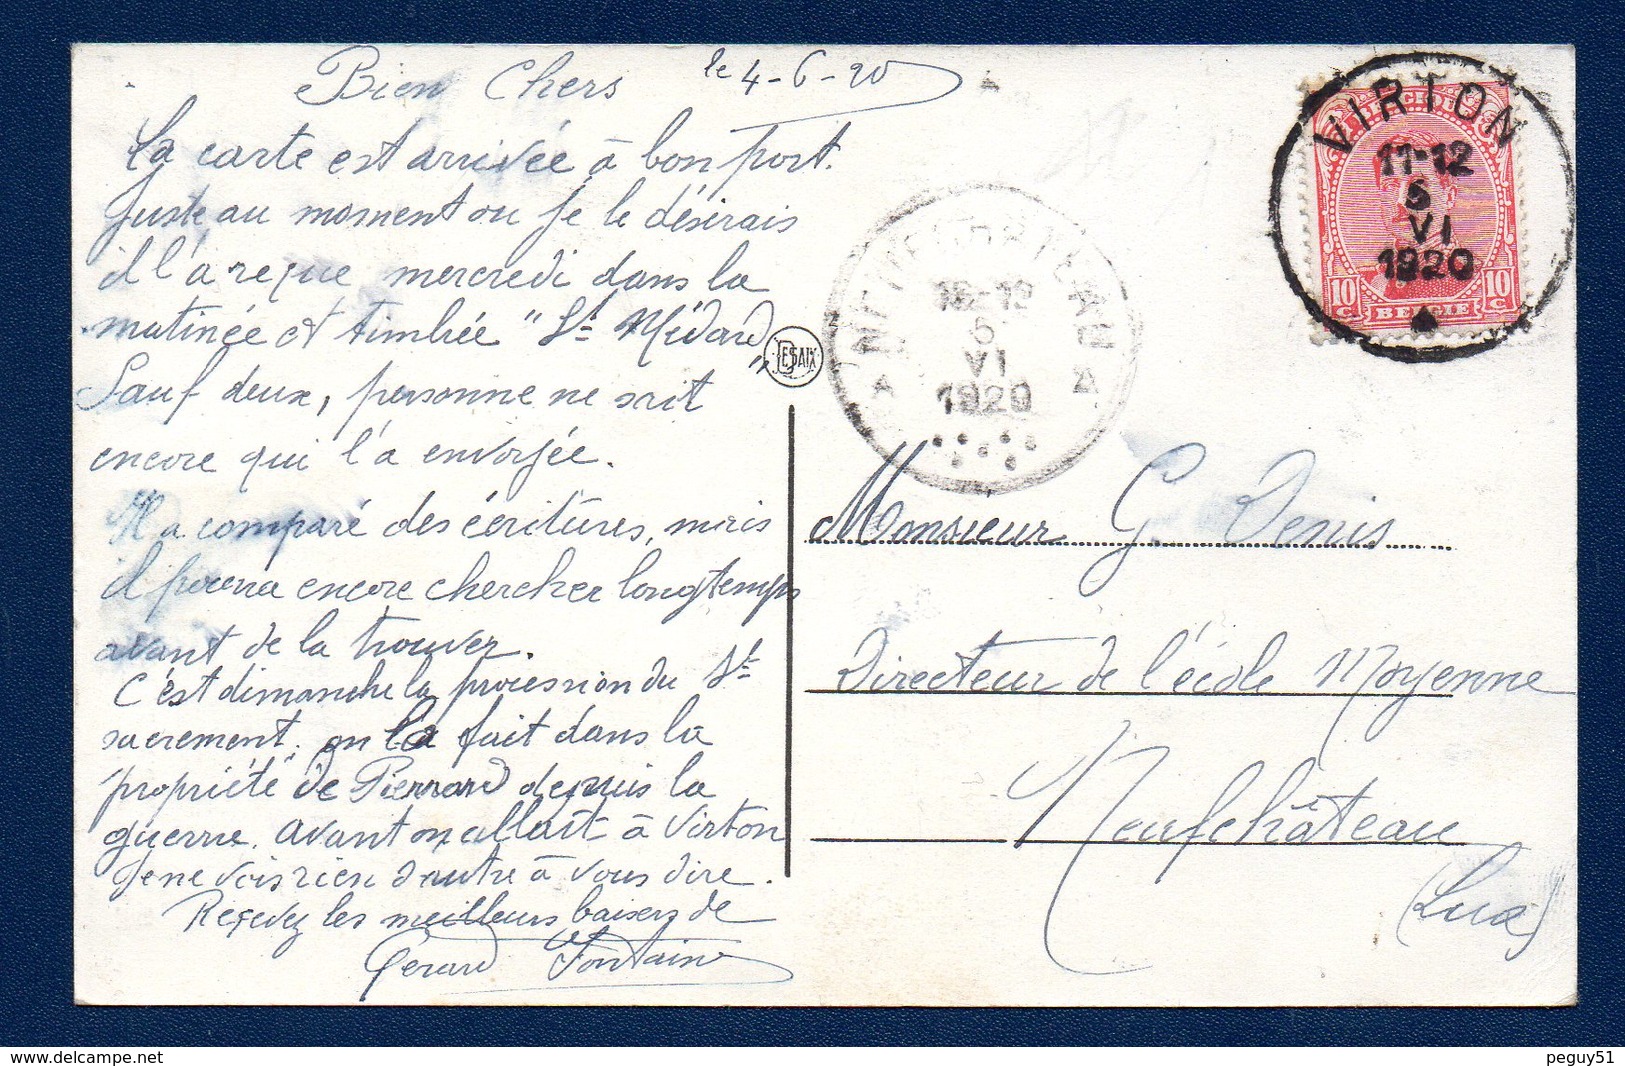 Bien Chers le 4-6-20
La carte est arrivée à bon port.
Juste au moment ou je le désirais
il l'a reçue mercredi dans la
matinée et timbrée "St Médard"
Sauf deux, personne ne sait
encore qui l'a envoyée.
Il a comparé des écritures, mais
il pourra encore chercher longtemps
avant de la trouver.
C'est dimanche la procession du St
sacrement, on la fait dans la
propriété de Pierrard depuis la
guerre. avant on allait à Virton
Je ne vois rien d'autre à vous dire.
Recevez les meilleurs baisers de
Gérard Fontaine
DESAIX
NEUFCHATEAU
5
VI
1920
VIRTON
11-12
5
VI
1920
BELGIQUE
10 c. BELGIE 10 c.
Monsieur G. Denis
Directeur de l'école Moyenne
Neufchâteau
(Lux)
peguy51